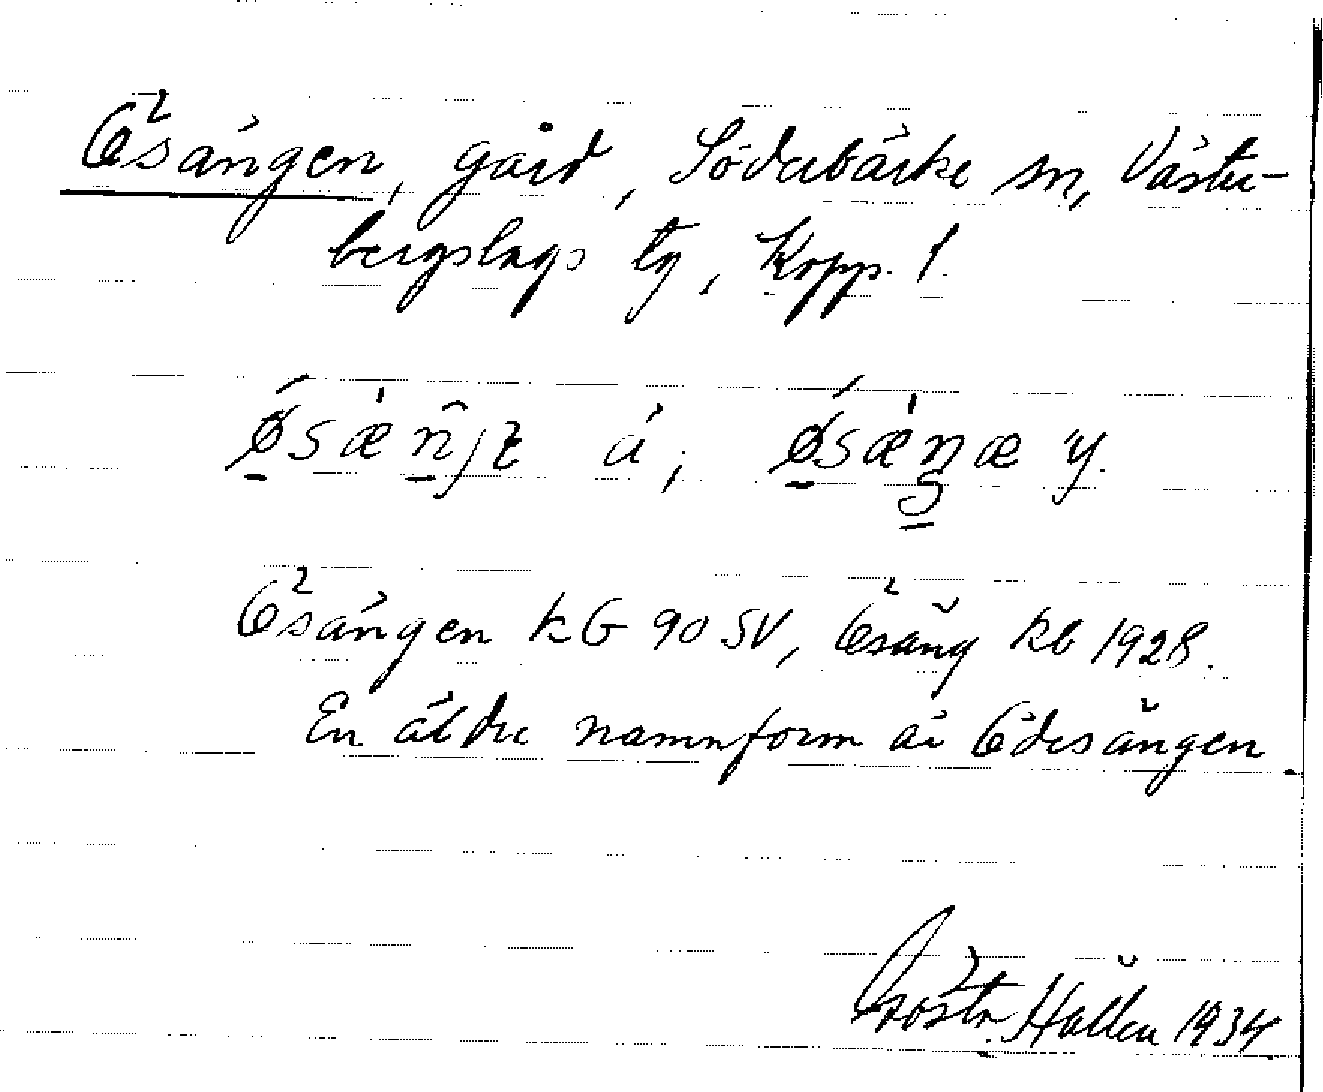 Ösängen, gård, Söderbärke sn, Väster-
bergslags tg, Kopp. l.
ä, y.
Ösängen kb 90 SV, Ösäng kb 1928.
En äldre namnform är Ödesängen.
Hallén 1934